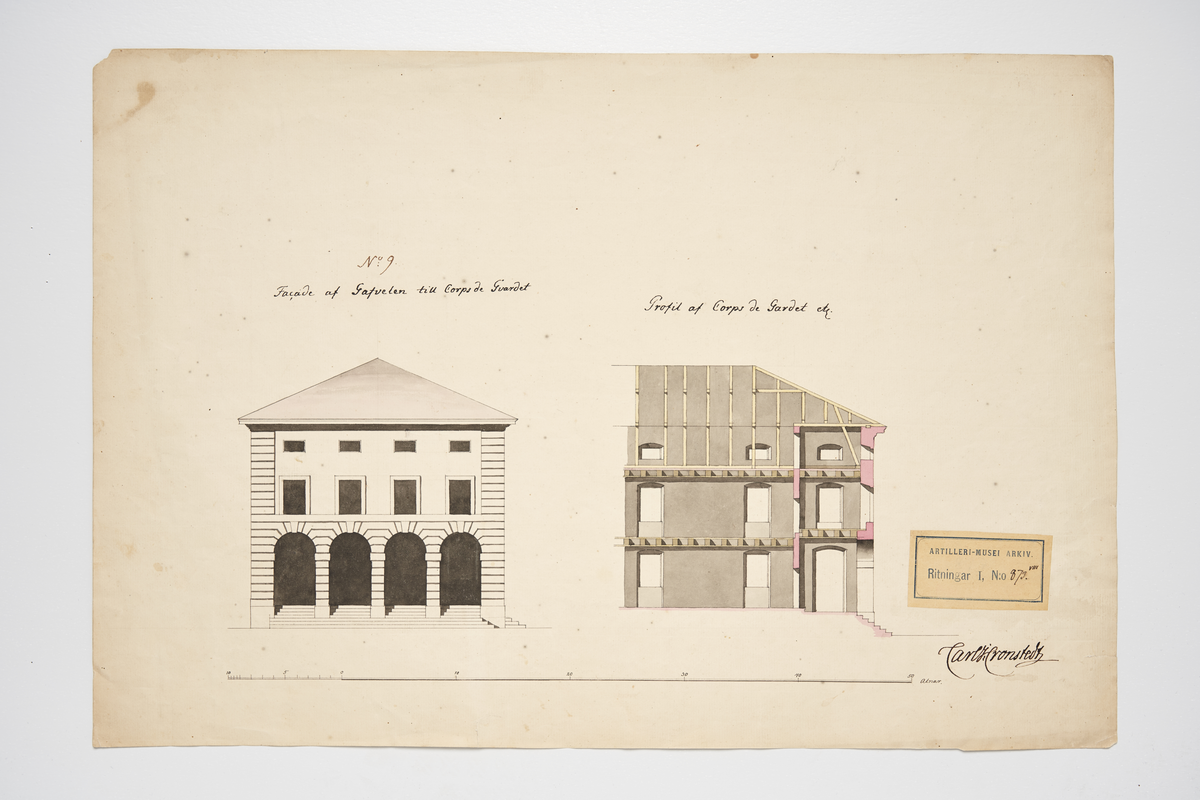 No 9
Façade af Gafvelen till Corps de Gvardet
Profil af Corps de Gardet etc.
ARTILLERI-MUSEI ARKIV.
Ritningar I, N:o 873. VIII
Carl J: Cronstedt
10 5 0 10 20 30 40 50 Alnar.